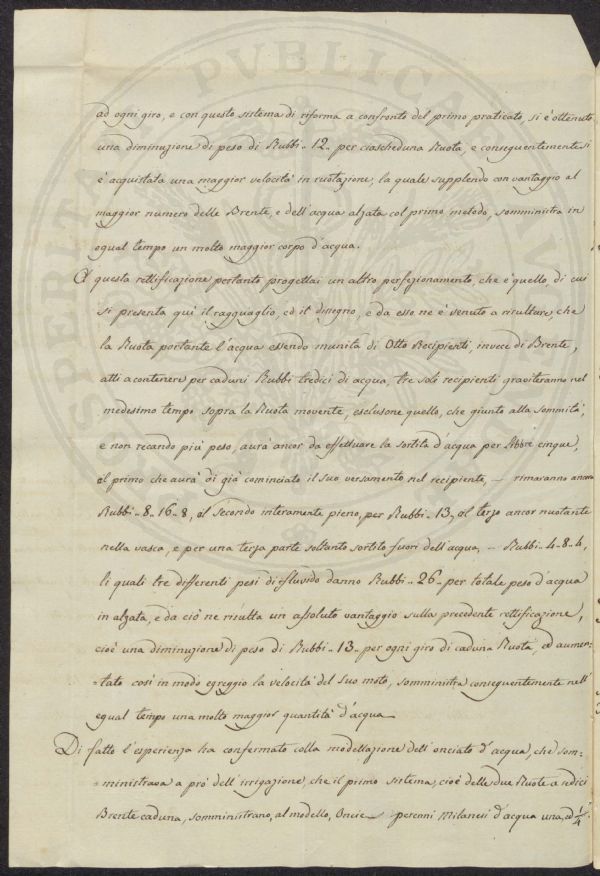 ad ogni giro, e con questo sistema di riforma a confronto del primo praticato, si è ottenuto
una diminuzione di peso di Rubbi.. 12.. per ciascheduna Ruota, e conseguentemente si
è acquistata una maggior velocità in ruotazione, la quale supplendo con vantaggio al
maggior numero delle Brente, e dell'acqua alzata col primo metodo, somministra in
egual tempo un molto maggior corpo d'acqua.
A questa rettificazione pertanto progettai un altro perfezionamento, che è quello di cui
si presenta quì il ragguaglio, ed il disegno, e da esso ne è venuto a risultare, che
la Ruota portante l'acqua essendo munita di Otto Recipienti, invece di Brente,
atti a contenere per caduni Rubbi tredici di acqua, tre soli recipienti graviteranno nel
medesimo tempo sopra la Ruota movente, esclusone quello, che giunto alla sommità,
e non recando più peso, aurà ancor da effettuare la sortita d'acqua per Libbre cinque,
il primo che aurà di già cominciato il suo versamento nel recipiente, — rimaranno ancora
Rubbi.. 8.. 16.. 8, il secondo interamente pieno, per Rubbi.. 13, il terzo ancor nuotante
nella vasca, e per una terza parte soltanto sortito fuori dell'acqua, — Rubbi.. 4.. 8.. 4,
li quali tre differenti pesi di fluido danno Rubbi.. 26.. per totale peso d'acqua
in alzata, e da ciò ne risulta un assoluto vantaggio sulla precedente rettificazione,
cioè una diminuzione di peso di Rubbi.. 13.. per ogni giro di caduna Ruota, ed aumen=
=tato così in modo egreggio la velocità del suo moto, somministra conseguentemente nell'
egual tempo una molto maggior quantità d'acqua.
Di fatto l'esperienza ha confermato colla modellazione dell'onciato d'acqua, che som=
=ministrava a prò dell'irrigazione, che il primo sistema, cioè delle due Ruote a sedici
Brente caduna, somministrano, al modello, Oncie perenni Milanesi d'acqua una, ed 1/4
PUBLICA